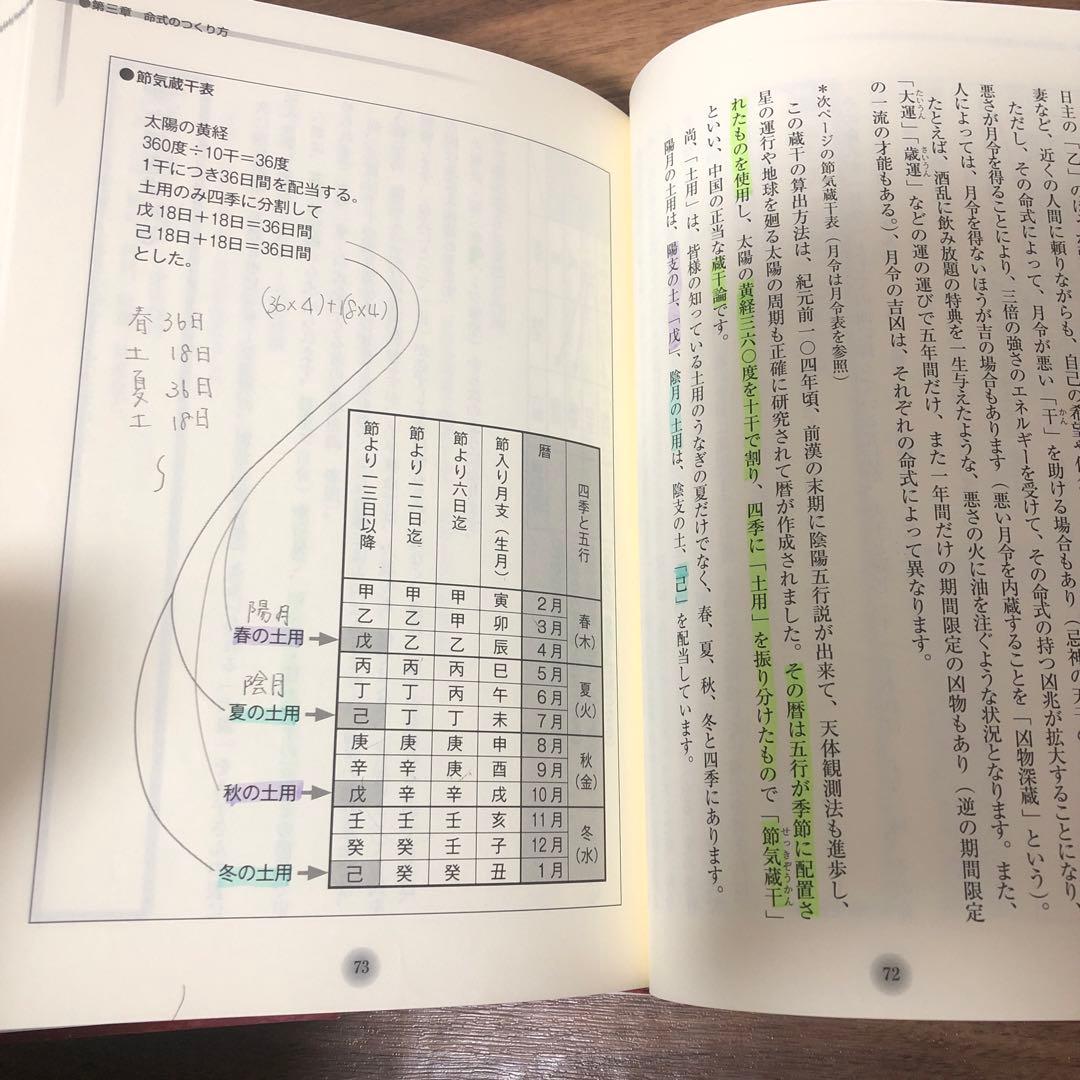 日主の「乙」の
妻など、近くの人間に頼りながらも、自己の希望や
ただし、その命式によって、月令が悪い「干」を助ける場合もあり（忌神の天
悪さが月令を得ることにより、三倍の強さのエネルギーを受けて、その命式の持つ凶兆が拡大することになり、
人によっては、月令を得ないほうが吉の場合もあります（悪い月令を内蔵することを「凶物深蔵」という）。
たとえば、酒乱に飲み放題の特典を一生与えたような、悪さの火に油を注ぐような状況となります。また、
「大運」「歳運」などの運の運びで五年間だけ、また一年間だけの期間限定の凶物もあり（逆の期間限定
たいうん さいうん
かん
の一流の才能もある。）、月令の吉凶は、それぞれの命式によって異なります。
＊次ページの節気蔵干表（月令は月令表を参照）
この蔵干の算出方法は、紀元前一〇四年頃、前漢の末期に陰陽五行説が出来て、天体観測法も進歩し、
星の運行や地球を廻る太陽の周期も正確に研究されて暦が作成されました。その暦は五行が季節に配置さ
れたものを使用し、太陽の黄経三六〇度を十干で割り、四季に「土用」を振り分けたもので「節気蔵干」
せっきぞうかん
といい、中国の正当な蔵干論です。
尚、「土用」は、皆様の知っている土用のうなぎの夏だけでなく、春、夏、秋、冬と四季にあります。
陽月の土用は、陽支の土、「戊」、陰月の土用は、陰支の土、「己」を配当しています。
72
●第三章 命式のつくり方
●節気蔵干表
太陽の黄経
360度÷10干＝36度
1干につき36日間を配当する。
土用のみ四季に分割して
戊 18日＋18日＝36日間
己 18日＋18日＝36日間
とした。
(36×4)+(18×4)
春 36日
土 18日
夏 36日
土 18日
節より一三日以降 節より一二日迄 節より六日迄 節入り月支（生月） 暦 四季と五行
甲 甲 甲 寅 2月 春（木）
乙 乙 甲 卯 3月
陽月
春の土用 戊 乙 乙 辰 4月
丙 丙 乙 巳 5月 夏（火）
丁 丁 丙 午 6月
陰月
夏の土用 己 丁 丁 未 7月
庚 庚 庚 申 8月 秋（金）
辛 辛 庚 酉 9月
秋の土用 戊 辛 辛 戌 10月
壬 壬 壬 亥 11月 冬（水）
癸 癸 壬 子 12月
冬の土用 己 癸 癸 丑 1月
73